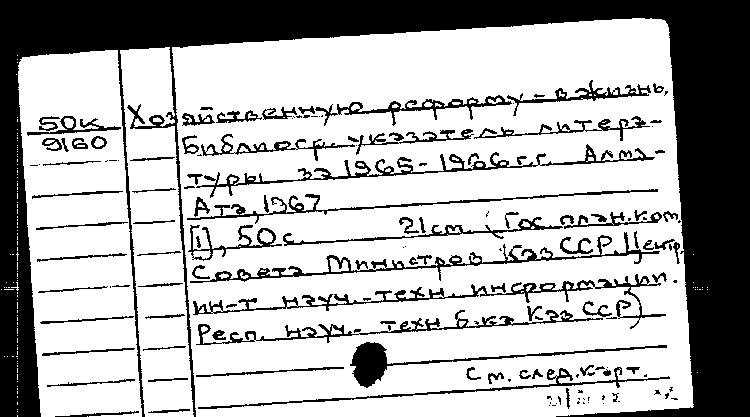 50к Хозяйственную реформу - в жизнь.
9160 Библиогр. указатель литера-
туры за 1965-1966 г.г. Алма-
Ата, 1967.
[1], 50 с. 21 см. (Гос. план. ком.
Совета Министров Каз ССР. Центр.
ин-т науч.-техн. информации.
Респ. науч.- техн б-ка Каз ССР)
См. след. карт.